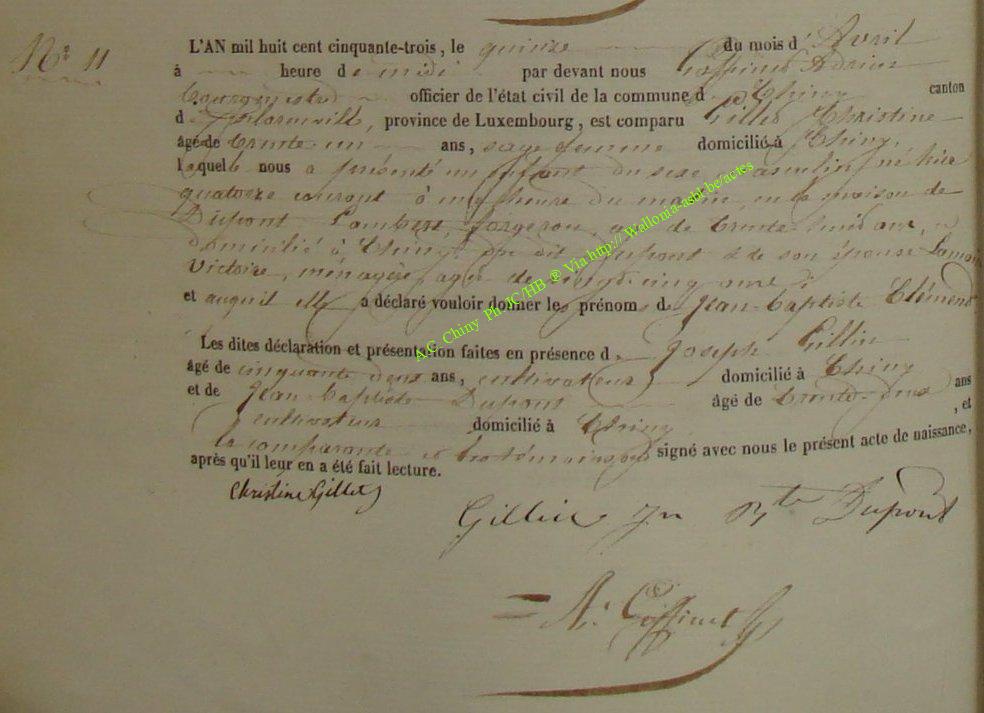 N° 11
L'AN mil huit cent cinquante-trois, le quinze du mois d'Avril
à heure de midi par devant nous Coffinet Adrien
bourgmestre officier de l'état civil de la commune de Chiny canton
de Florenville, province de Luxembourg, est comparu Gillet Christine
âgé de trente un ans, sage femme domicilié à Chiny,
laquelle nous a présenté un enfant du sexe masculin, né hier
quatorze courant à heure du matin, en la maison de
Dupont Lambert, forgeron, âgé de trente-huit ans,
domicilié à Chiny, dit Dupont & de son épouse
Victoire, ménagère, âgée de cinq ans ;
et auquel elle a déclaré vouloir donner les prénom de Jean-Baptiste Clément
Les dites déclaration et présentation faites en présence de Joseph Gillin
âgé de cinquante deux ans, cultivateur domicilié à Chiny
et de Jean-Baptiste Dupont âgé de trente-deux ans
cultivateur domicilié à Chiny, et
la comparante et les témoins ont signé avec nous le présent acte de naissance,
après qu'il leur en a été fait lecture.
Christine Gillet
Gillin Jn Bte Dupont
A. Coffinet
A.G. Chiny Ph JC/HB ® Via http://.Wallonia-asbl.be/actes